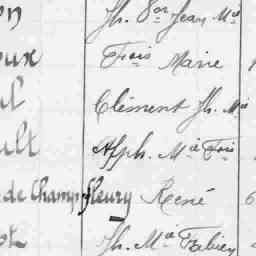 on Jh. Vor Jean Mie
oux Frois Marie
ul Clément Jh. Mie
ult Alph. Mie Frois
de Champfleury René 6
ot Jh. Mie Fabien